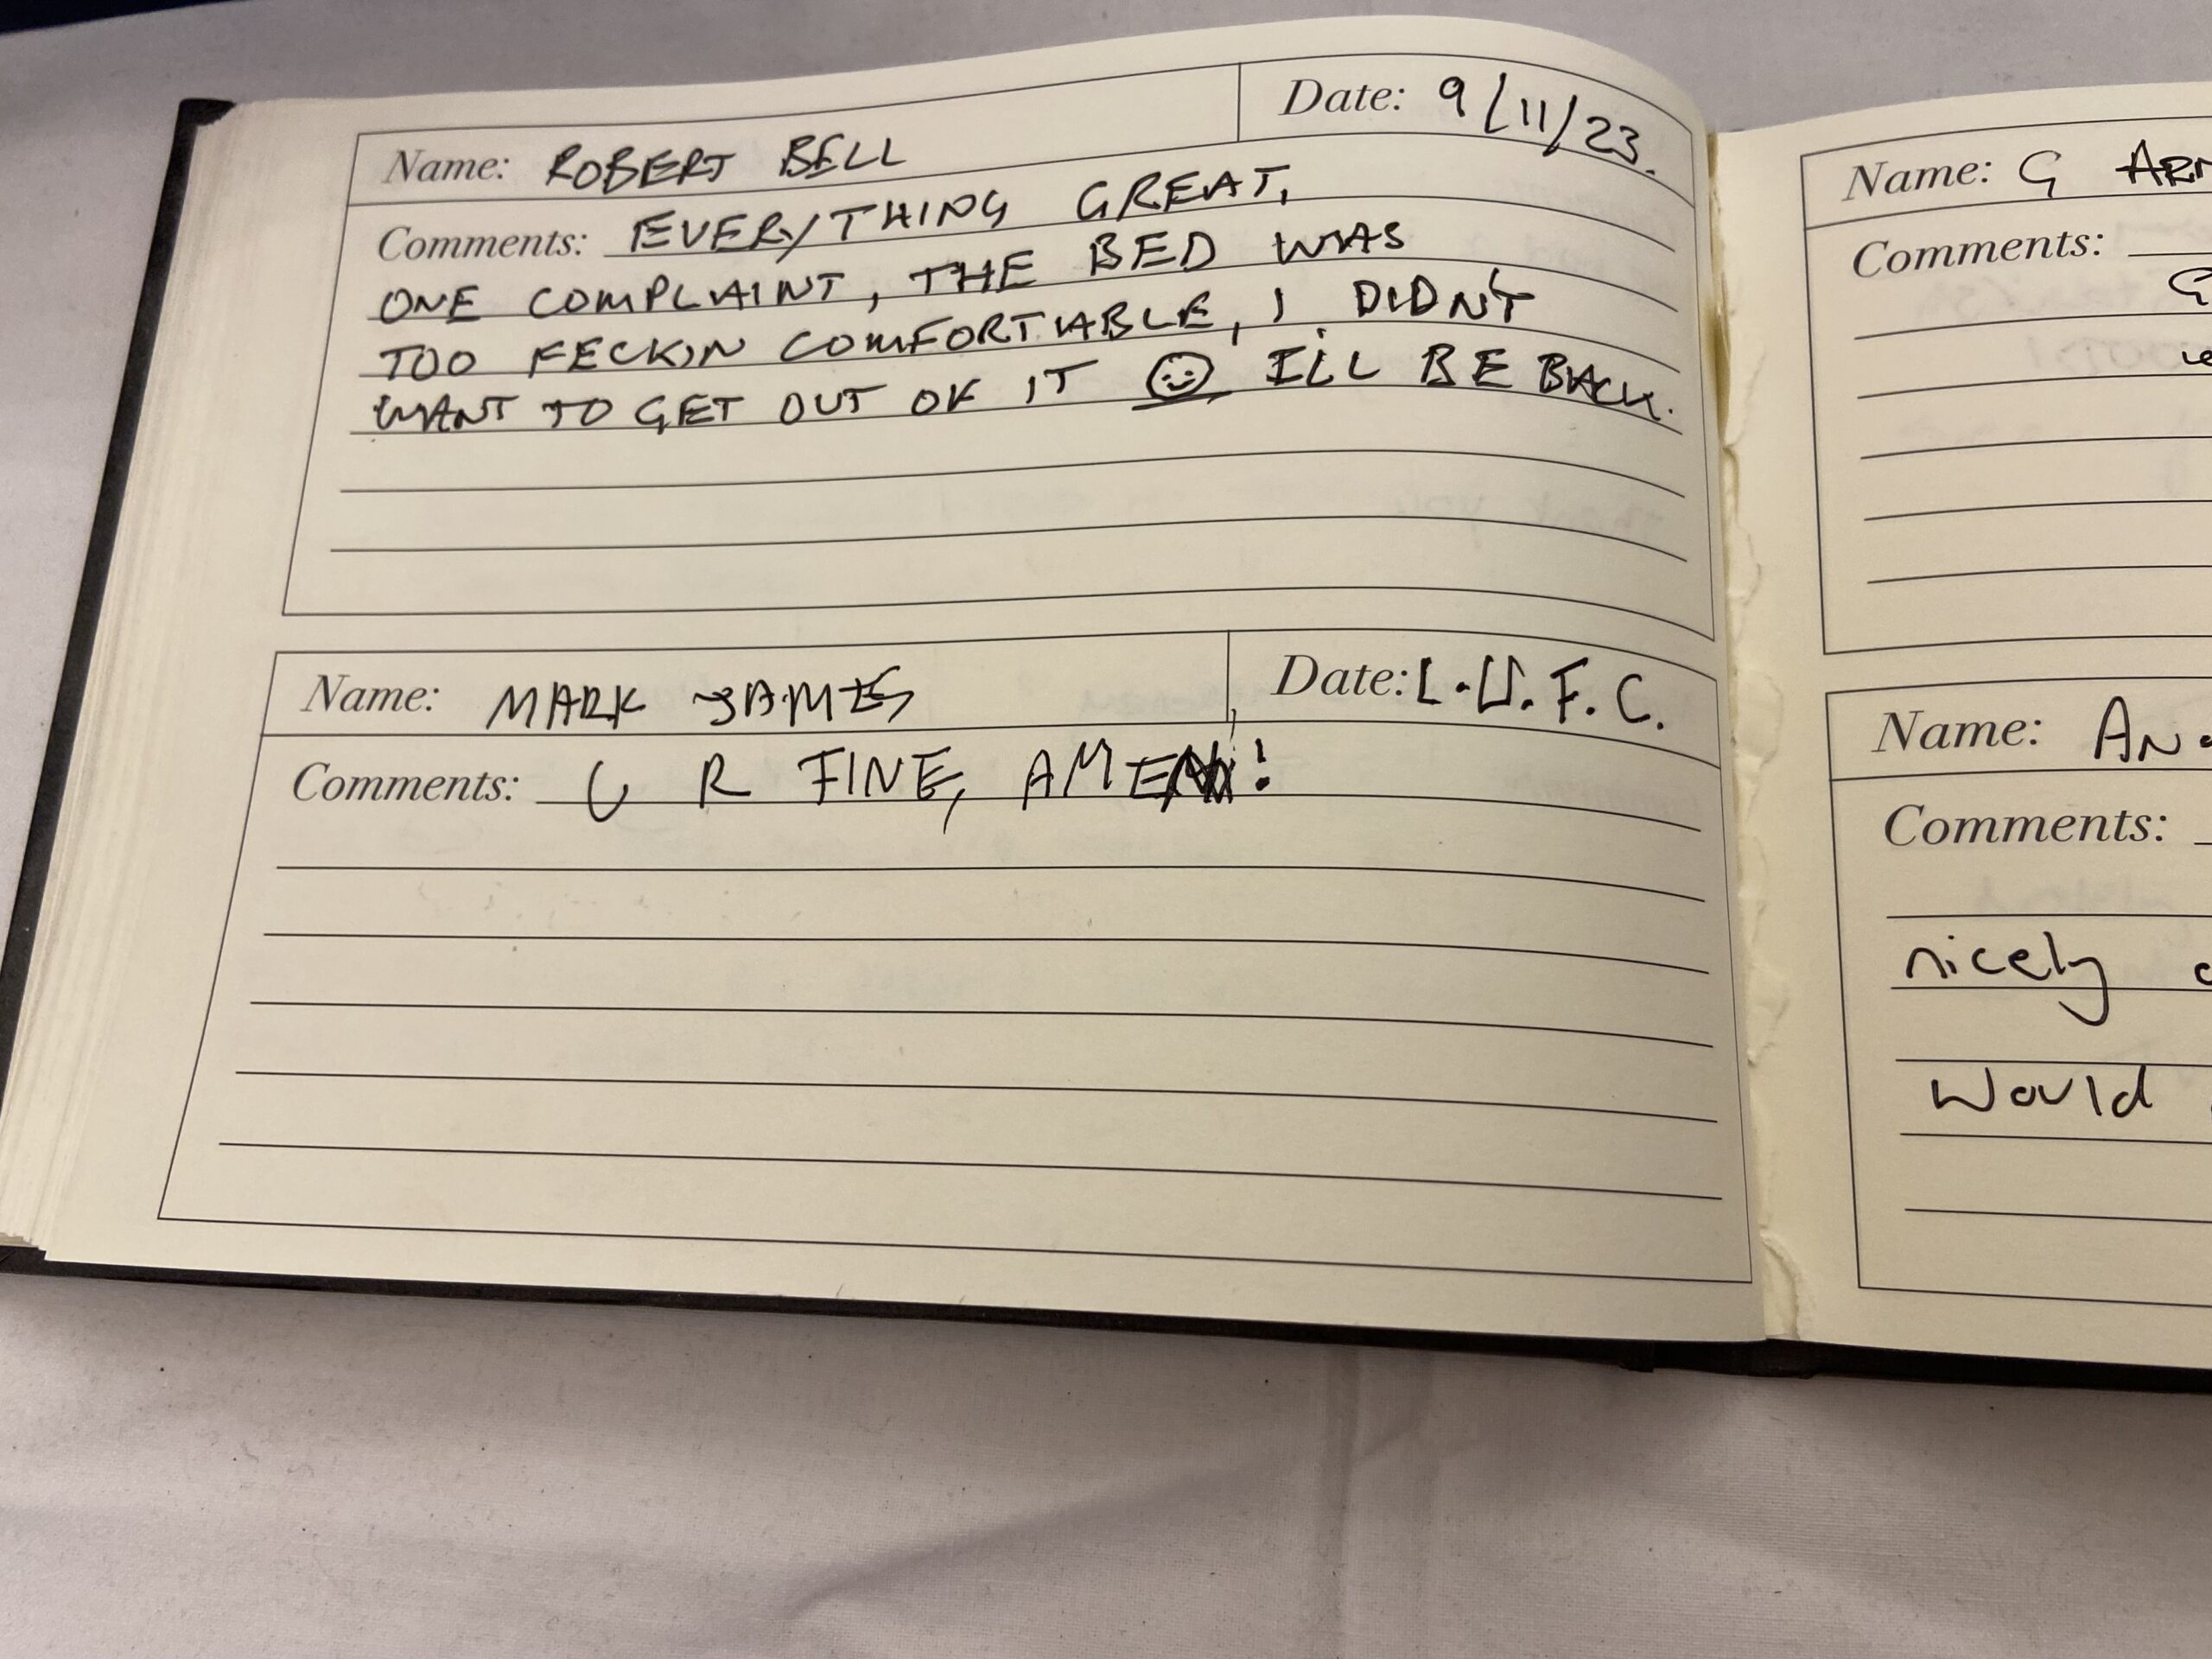 Name: ROBERT BELL
Date: 9/11/23.
Comments: EVERYTHING GREAT,
ONE COMPLAINT, THE BED WAS
TOO FECKIN COMFORTABLE, I DIDN'T
WANT TO GET OUT OF IT ☺ I'LL BE BACK.
Name: MARK JAMES
Date: L.U.F.C.
Comments: U R FINE, AMEN!
Name: G
Comments:
Name:
Comments:
nicely
would